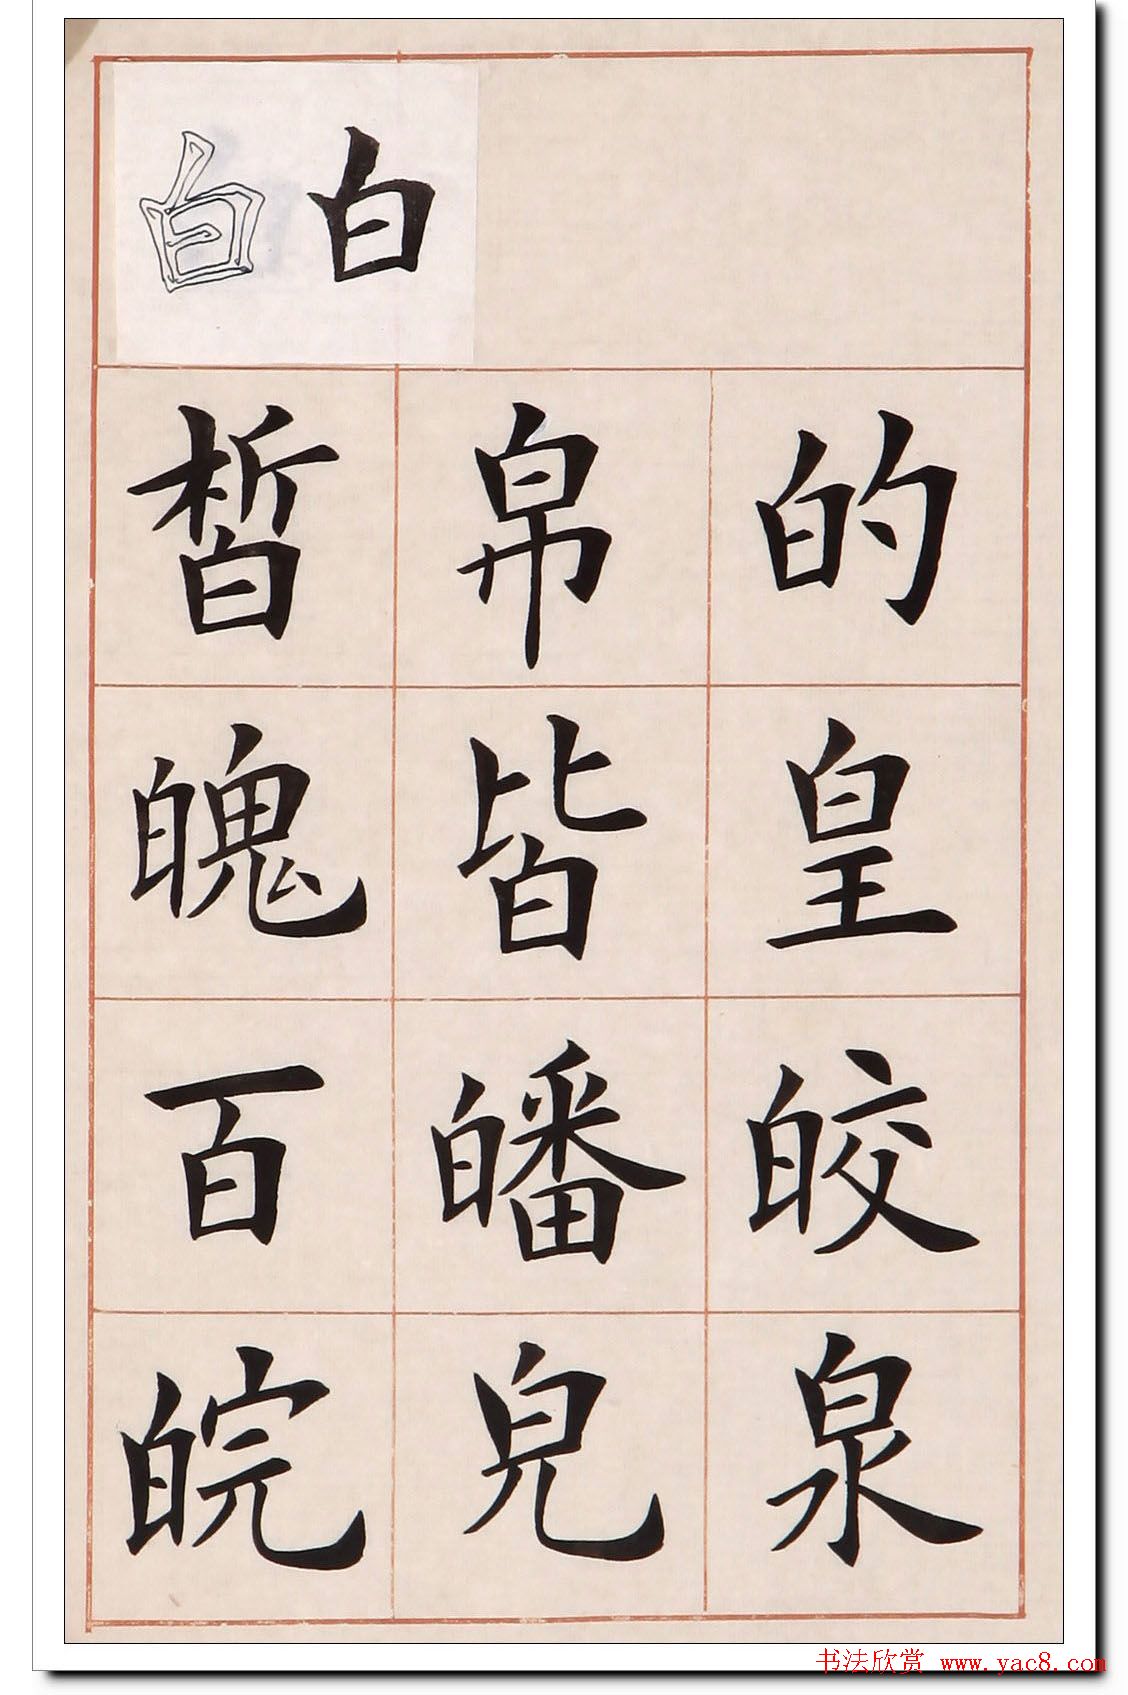 白 白
皙 帛 的
魄 皆 皇
百 皤 皎
皖 皃 泉
书法欣赏 www.yac8.com